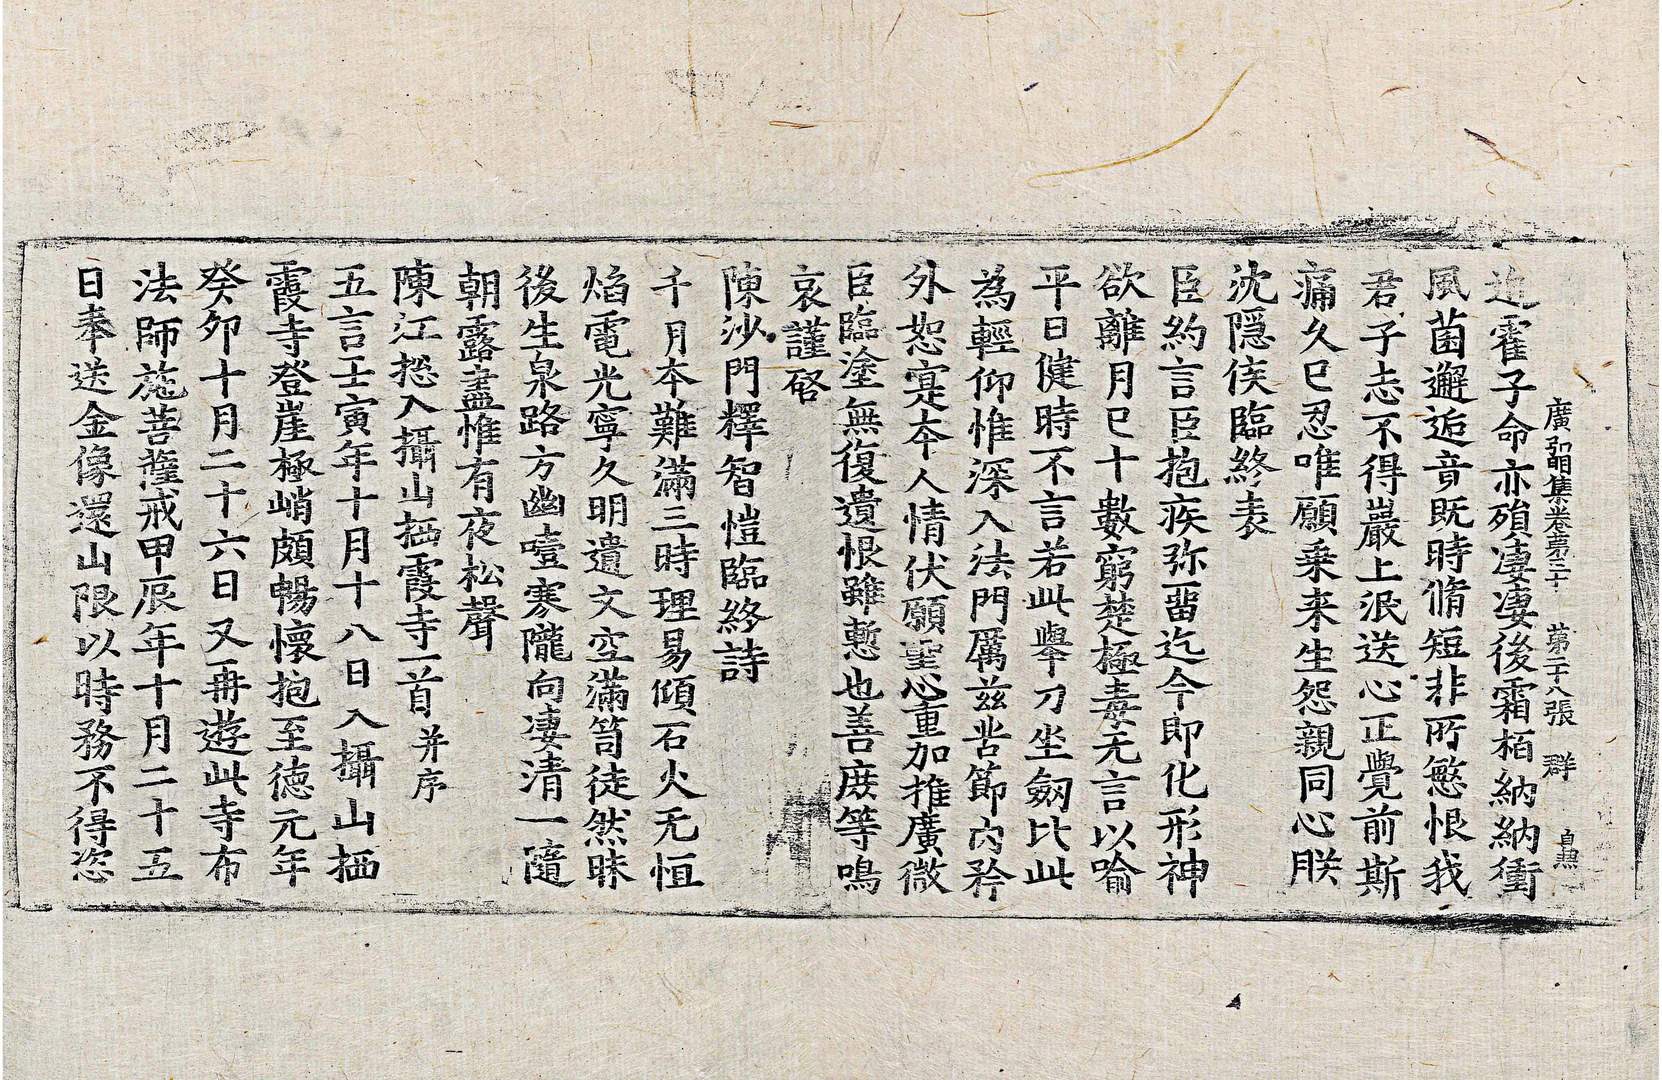 廣弘明集卷第三十　第二十八張　群
迄霍子命亦殞淒淒後霜栢納納衝
風菌邂逅音既時脩短非所慜恨我
君子志不得巖上泯送心正覺前斯
痛久已忍唯願乗来生怨親同心朕
沈隱侯臨終表
臣約言臣抱疾弥留迄今即化形神
欲離月已十數窮楚極毒无言以喻
平日健時不言若此擧刀坐劔比此
為輕仰惟深入法門厲兹苦節內矜
外恕寔本人情伏願聖心重加推廣微
臣臨塗無復遺恨雖慙也善庶等鳴
哀謹啓
陳沙門釋智愷臨終詩
千月本難滿三時理易傾石火无恒
焰電光寧久明遺文空滿笥徒然昧
後生泉路方幽噎寒隴向淒清一隨
朝露盡惟有夜松聲
陳江揔入攝山栖霞寺一首并序
五言壬寅年十月十八日入攝山栖
霞寺登崖極峭頗暢懷抱至德元年
癸卯十月二十六日又再遊此寺布
法師施菩薩戒甲辰年十月二十五
日奉送金像還山限以時務不得恣